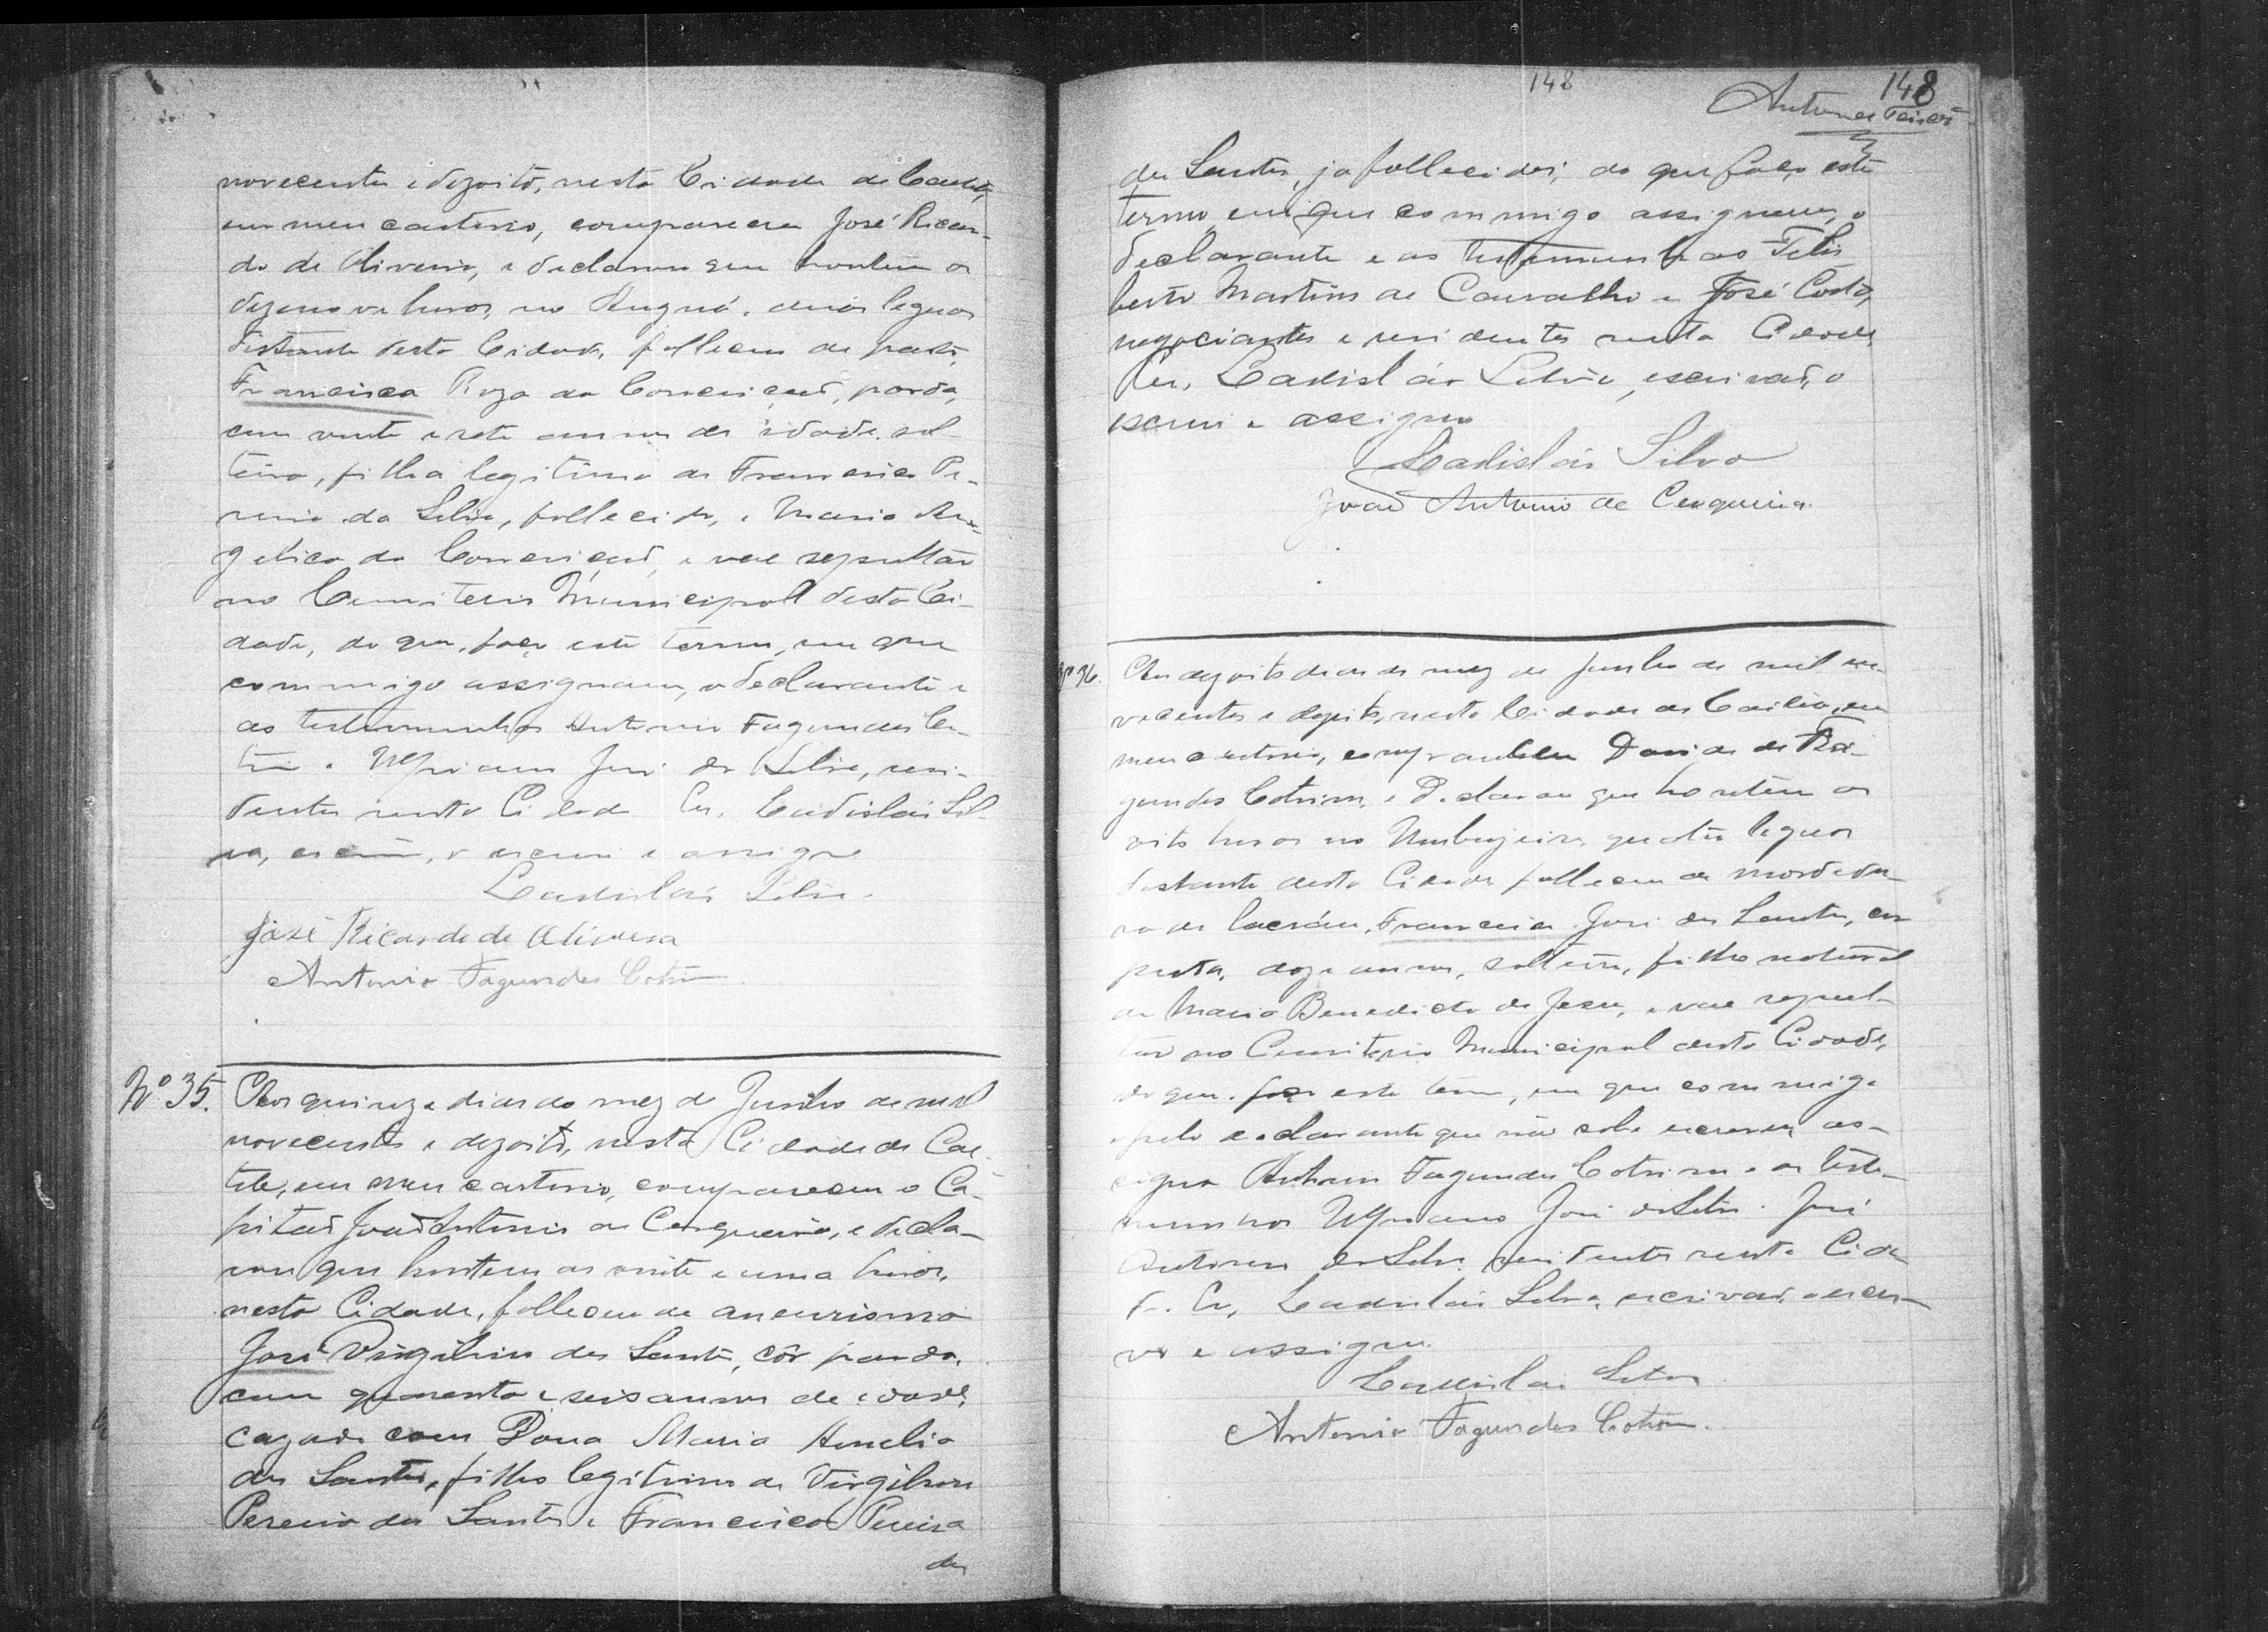 novecentos e dezoito, nesta Cidade de Caeteté,
em meu cartorio, compareceu José Ricar-
do de Oliveira, e declarou que hontem as
dezenove horas, no duas leguas
distante desta Cidade, falleceu de parto,
Francisca Roza da Conceiçaõ, parda,
com vinte e sete annos de idade, sol-
teira, filha legitima de Francisco Pe-
reira da Silva, fallecido, e Maria An-
gelica da Conceiçaõ, e vae sepultar
no Cemiterio Municipal desta Ci-
dade, do que, faço este termo, em que
commigo assignam, o declarante e
as testemunhas Antonio Fagundes Co-
trim e Ulpiano José da Silva, resi-
dentes nesta Cidade Eu, Ladislaú Sil-
va, escrivão, o escrevi e assigno
Ladislaú Silva.
José Ricardo de Oliveira
Antonio Fagundes Cotrim
Nº 35. Aos quinze dias do mez de Junho de mil
novecentos e dezoito, nesta Cidade de Cae-
tité, em meu cartorio, compareceu o Ca-
pitaõ Joaõ Antonio de Cerqueira, e decla-
rou que hontem as vinte e uma horas,
nesta Cidade, falleceu de aneurisma
José Virgilino dos Santos, côr parda,
com quarenta e seis annos de idade,
cazado com Dona Maria Amelia
dos Santos, filho legitimo de Virgilino
Pereira dos Santos e Francisca Pereira
dos
148
148
Antunes
dos Santos, ja fallecidos; do que faço este
termo, em que commigo assignam, o
declarante e as testemunhas Felis
berto Martins de Carvalho e José Costa,
negociantes e residentes nesta Cidade,
Eu, Ladislaú Silva, escrivaõ, o
escrevi e assigno
Ladislaú Silva
Joaõ Antonio de Cerqueira.
Nº 36. Aos dezoito dias do mez de Junho de mil no-
vecentos e dezoito, nesta Cidade de Caeteté, em
meu cartorio, compareceu de Fa-
gundes Cotrim, e declarou que hontem as
oito horas no Umbuzeiro, quatro leguas
distante desta Cidade falleceu de mordedu-
ra de lacráu, Francisco José dos Santos, cor
preta, doze annos, solteiro, filho natural
de Maria Benedicta de Jesus, e vae sepul-
tar no Cemiterio Municipal desta Cidade,
do que, faço este termo, em que commigo
e pelo declarante que não sabe escrever, as-
signa Antonio Fagundes Cotrim e as teste-
munhas Ulpiano José da Silva e José
Antunes da Silva residentes nesta Cida-
de. Eu, Ladislaú Silva, escrivaõ, o escre-
vi e assigno.
Ladislaú Silva
Antonio Fagundes Cotrim.